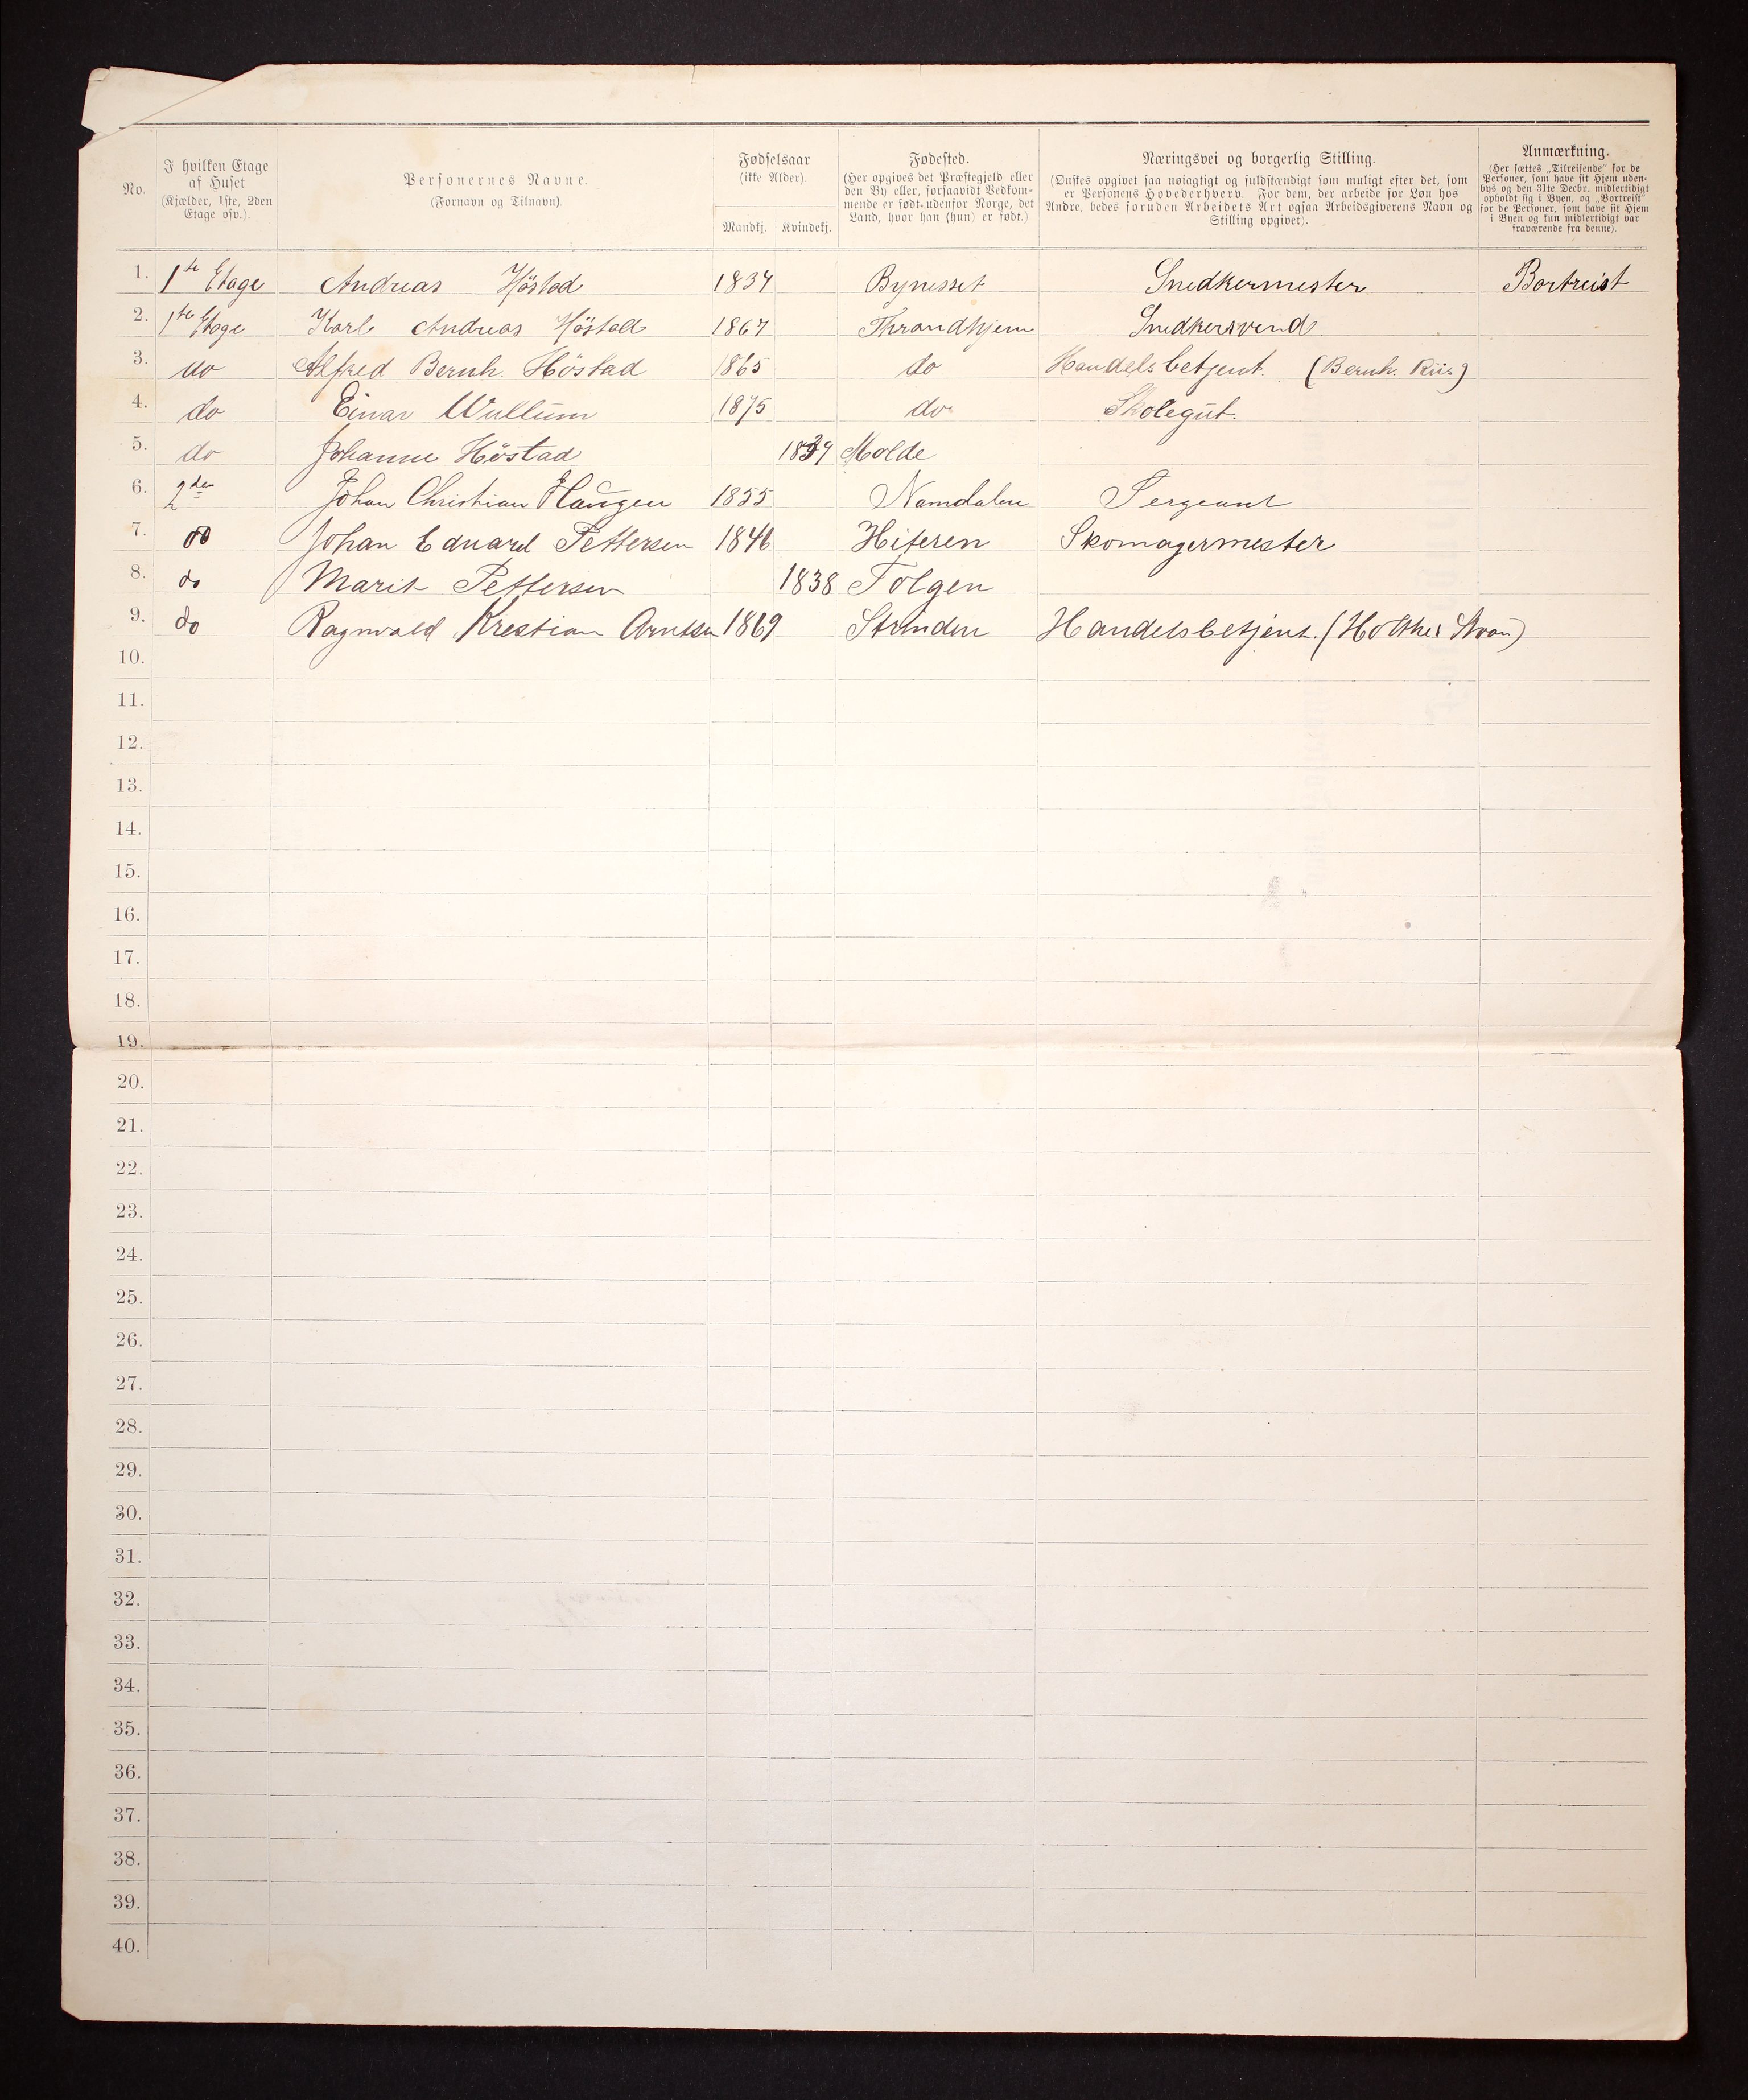 No.
I hvilken Etage
af Huset
(Kjælder, 1ste, 2den
Etage osv.).
Personernes Navne.
(Fornavn og Tilnavn).
Fødselsaar
(ikke Alder).
Mandkj. Kvindekj.
Fødested.
(Her opgives det Præstegjeld eller
den By eller, forsaavidt Vedkom-
mende er født udenfor Norge, det
Land, hvor han (hun) er født.)
Næringsvei og borgerlig Stilling.
(Ønskes opgivet saa nøiagtigt og fuldstændigt som muligt efter det, som
er Personens Hovederhverv. For dem, der arbeide for Løn hos
Andre, bedes foruden Arbeidets Art ogsaa Arbeidsgiverens Navn og
Stilling opgivet).
Anmærkning.
(Her sættes „Tilreisende" for de
Personer, som have sit Hjem uden-
bys og den 31te Decbr. midlertidigt
opholdt sig i Byen, og „Bortreist"
for de Personer, som have sit Hjem
i Byen og kun midlertidigt var
fraværende fra denne).
1. 1ste Etage Andreas Höstad 1834 Bynesset Snedkermester Bortreist
2. 1ste Etage Karl Andreas Höstad 1867 Throndhjem Snedkersvend
3. do Alfred Bernh. Höstad 1865 do Handelsbetjent. (Bernh. Riis)
4. do Einar Wullum 1875 do Skolegut.
5. do Johanne Höstad 1839 Molde
6. 2den Johan Christian Haugen 1855 Namdalen Sergeant
7. do Johan Edvard Pettersen 1846 Hiteren Skomagermester
8. do Marit Pettersen 1838 Tolgen
9. do Ragnvald Krestian Arntsen 1869 Strinden Handelsbetjent. (Holthes Kvon)
10.
11.
12.
13.
14.
15.
16.
17.
18.
19.
20.
21.
22.
23.
24.
25.
26.
27.
28.
29.
30.
31.
32.
33.
34.
35.
36.
37.
38.
39.
40.